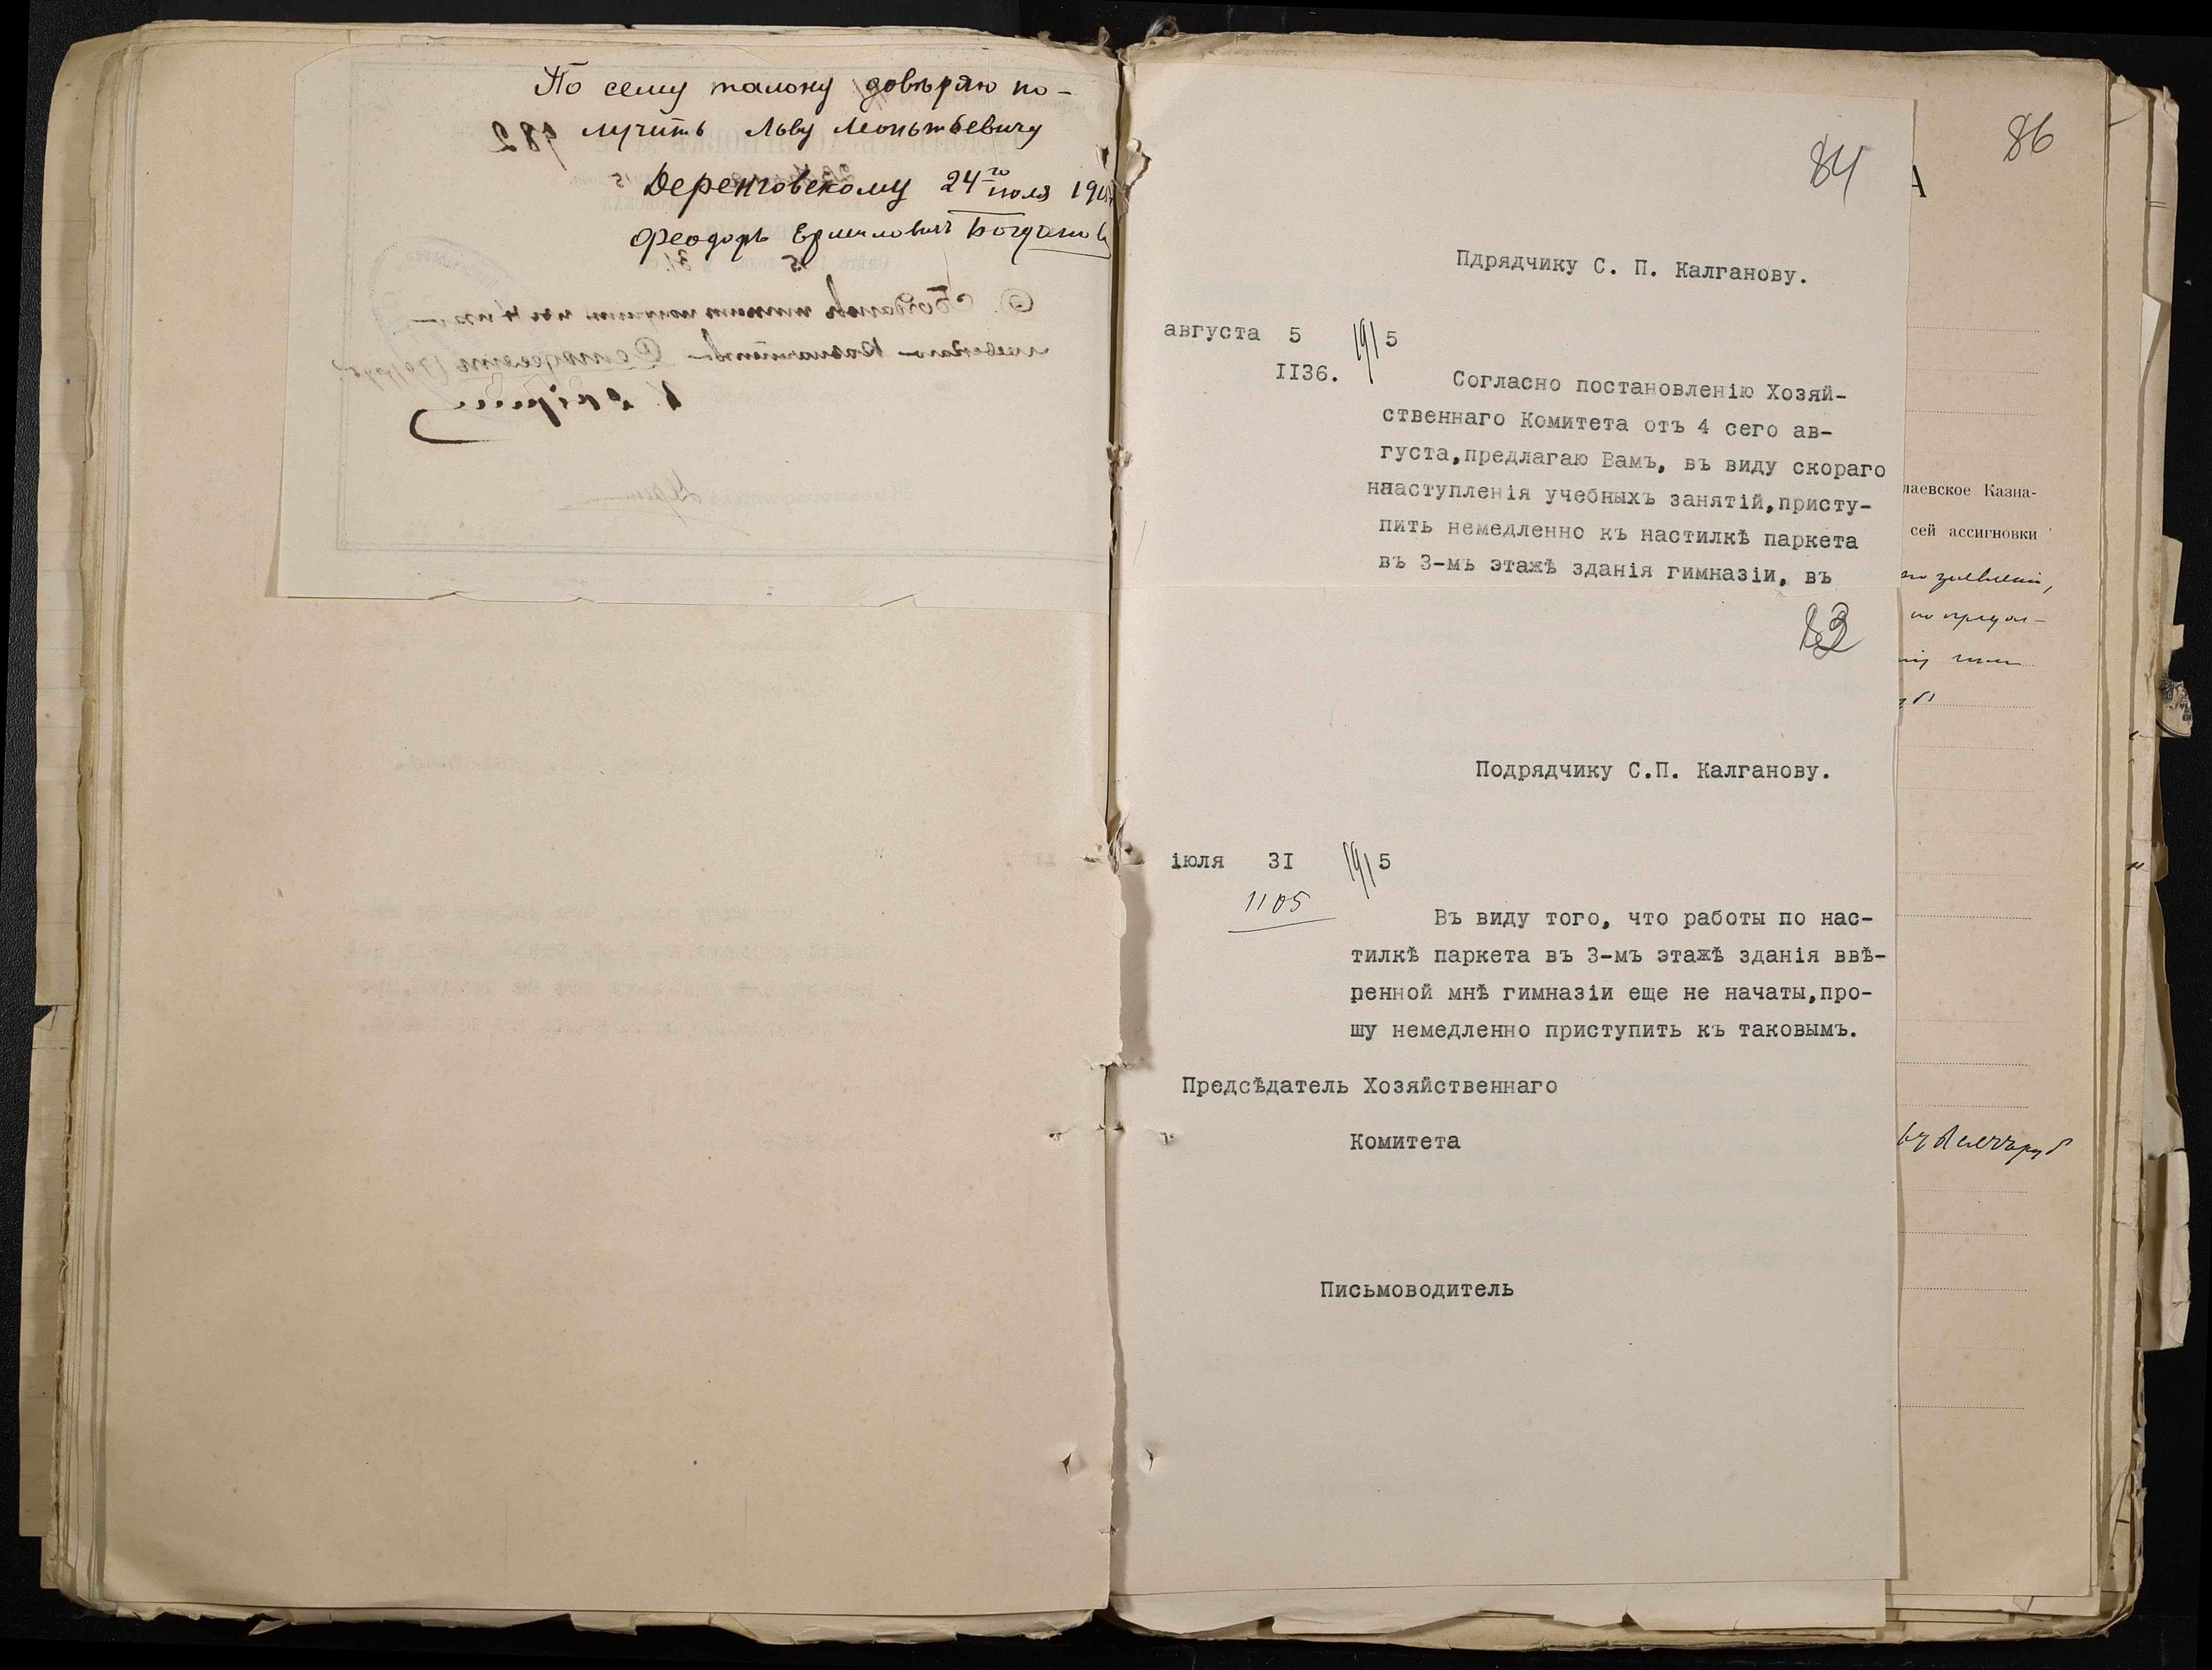 По сему талону довѣряю по-
лучить Льву Леонтьевичу
982
Деренговскому 24го іюля 191
Феодоръ Ермиловичъ Богданов
84
Пдрядчику С. П. Калганову.
августа 5 1915
II36.
Согласно постановленію Хозяй-
ственнаго Комитета отъ 4 сего ав-
густа,предлагаю Вамъ, въ виду скораго
ннаступленія учебныхъ занятій,присту-
пить немедленно къ настилкѣ паркета
въ 3-мъ этажѣ зданія гимназіи, въ
83
Подрядчику С.П. Калганову.
іюля 3I 1915
1105
Въ виду того, что работы по нас-
тилкѣ паркета въ 3-мъ этажѣ зданія ввѣ-
ренной мнѣ гимназіи еще не начаты,про-
шу немедленно приступить къ таковымъ.
Предсѣдатель Хозяйственнаго
Комитета
Письмоводитель
86
А
лаевское Казна-
сей ассигновки